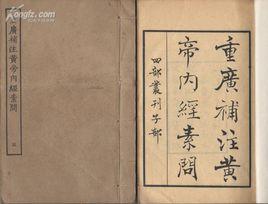 kongfz.com
重廣補注黃帝內經素問
重廣補注黃
帝內經素問
四部叢刊子部